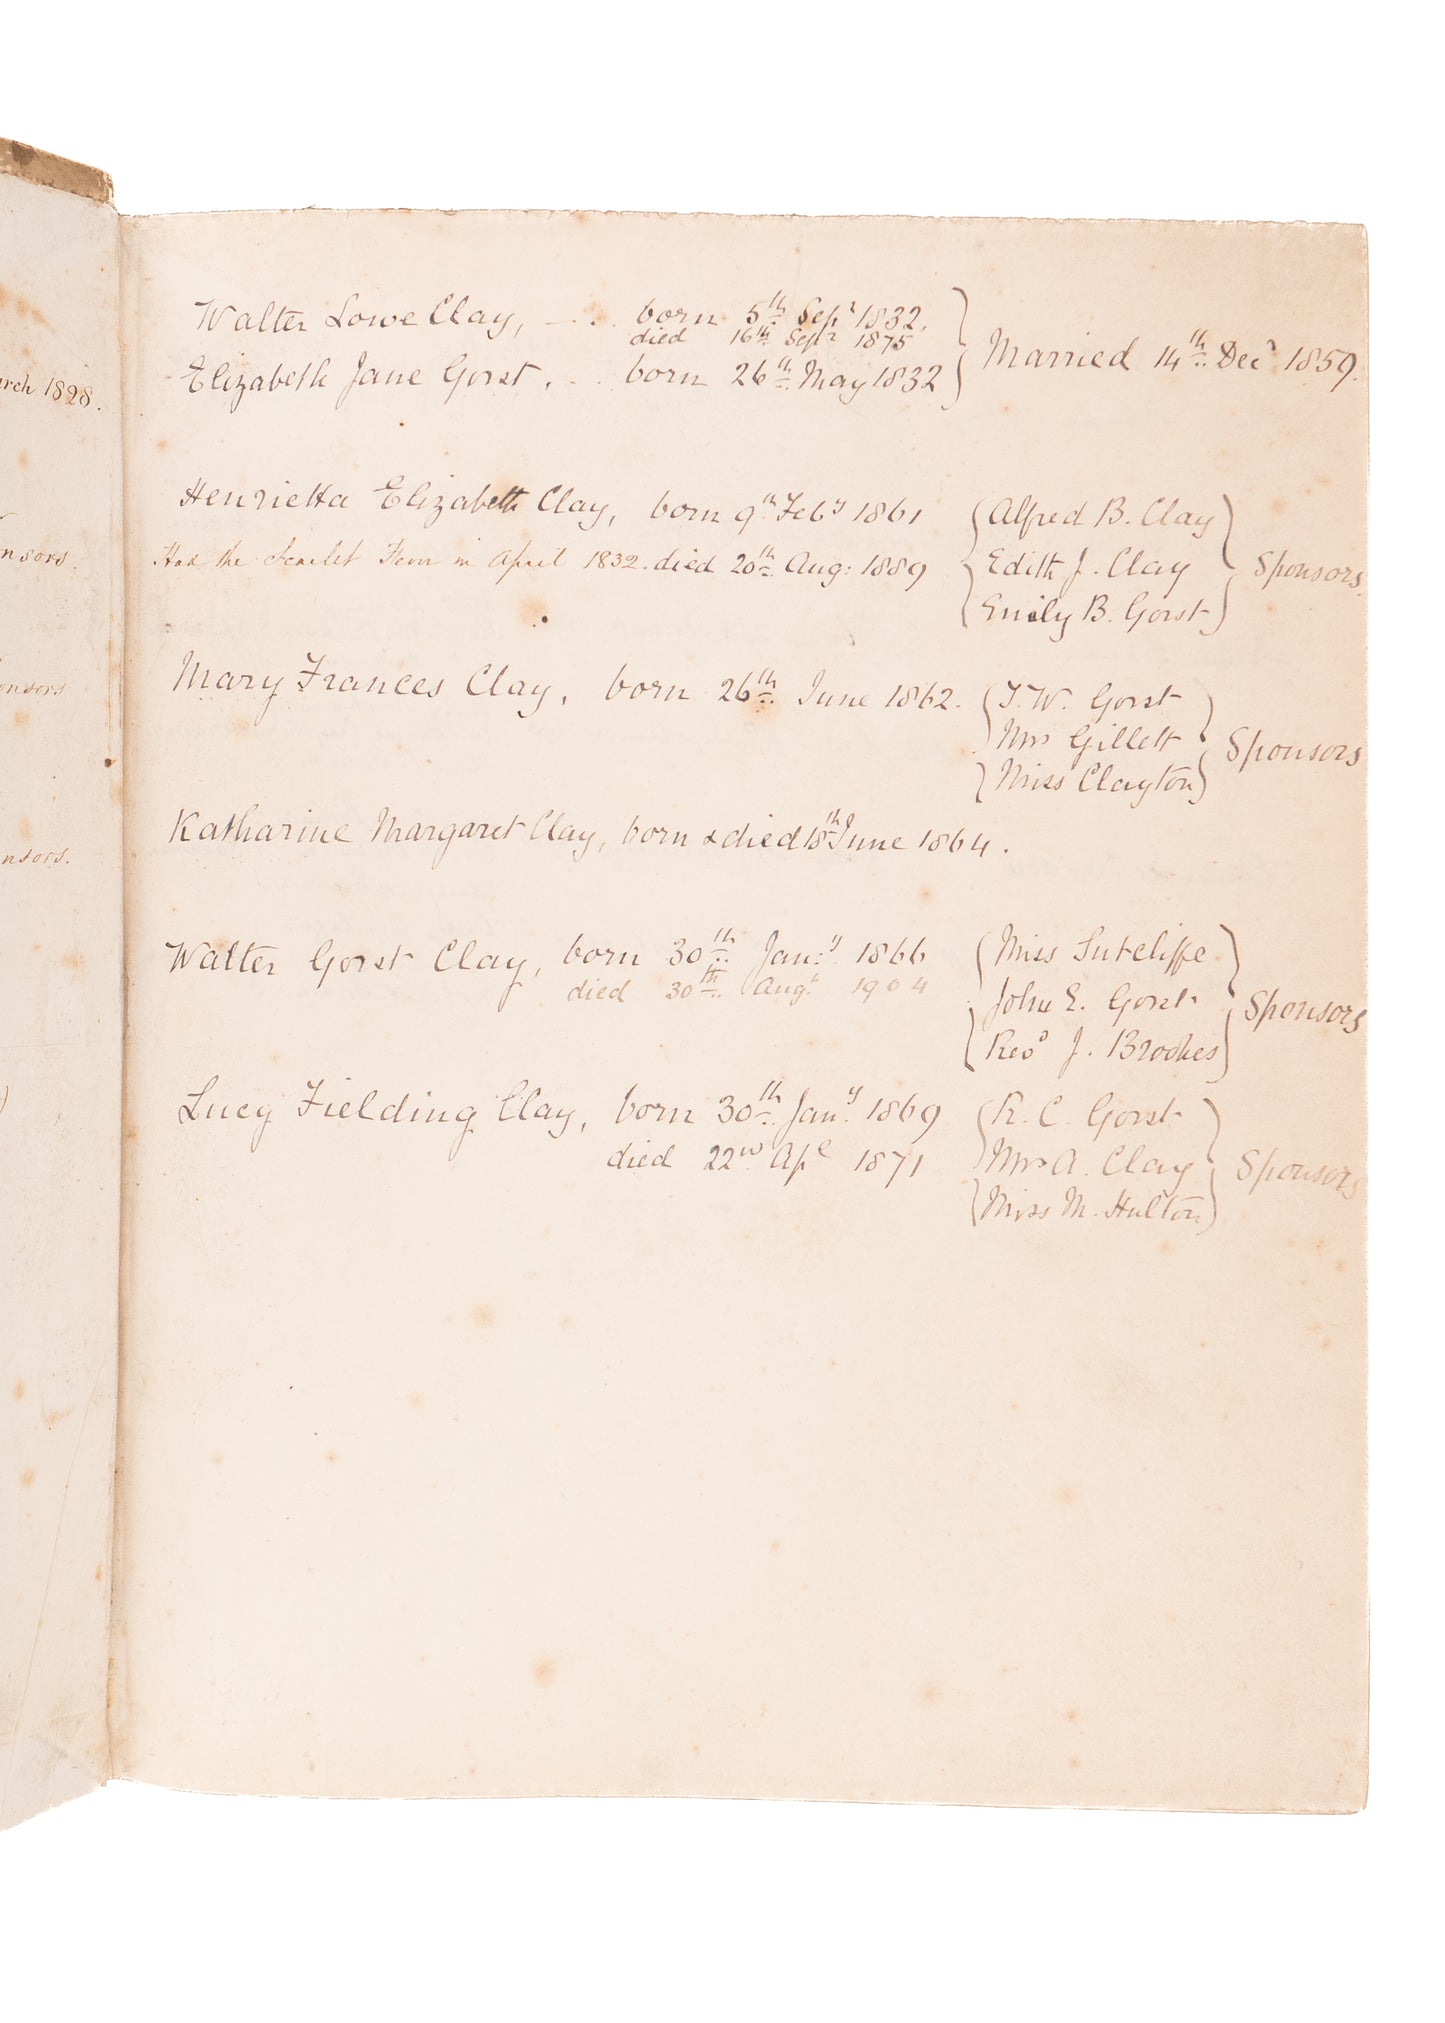 arch 1828.
nsors.
onsors
nsors.
Walter Lowe Clay, born 5th Sepr 1832.
died 16th Sepr 1875
Elizabeth Jane Gorst, born 26th May 1832
Married 14th Decr 1859.
Henrietta Elizabeth Clay, born 9th Feby 1861
Had the Scarlet Fever in April 1832. died 20th Aug: 1889
Alfred B. Clay
Edith J. Clay
Emily B. Gorst
Sponsors.
Mary Frances Clay, born 26th June 1862.
T. W. Gorst
Mrs Gillett
Miss Clayton
Sponsors
Katharine Margaret Clay, born & died 18th June 1864.
Walter Gorst Clay, born 30th Jany 1866
died 30th Augt 1904
Miss Sutcliffe
John E. Gorst
Revd J. Brookes
Sponsors
Lucy Fielding Clay, born 30th Jany 1869
died 22nd Apl 1871
R. C. Gorst
Mrs A. Clay
Miss M. Hulton
Sponsors